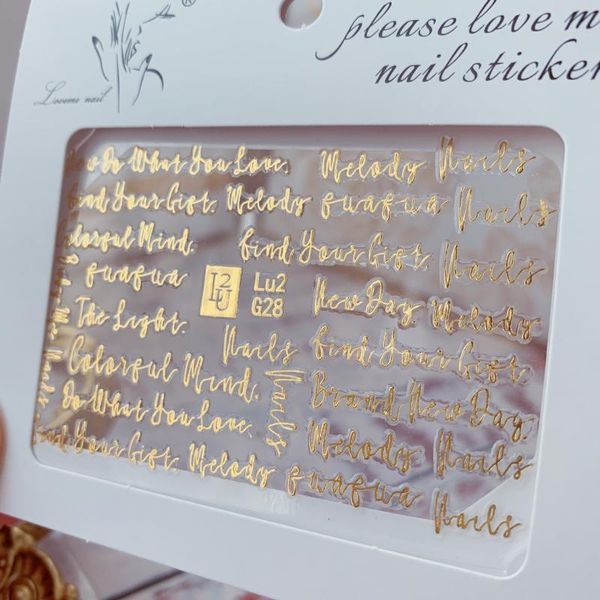 Loveme nail
®
please love m
nail sticker
Do What You Love. Melody Nails
Find Your Gift. Melody fuafua Nails
Colorful Mind. find Your Gift. Nails
fuafua
L2U
Lu2
G28
New Day. Melody
The Light.
Nails find Your Gift.
Colorful Mind. Nails Brand New Day.
Do What You Love. Melody Nails
find Your Gift. Melody fuafua Nails
Nails